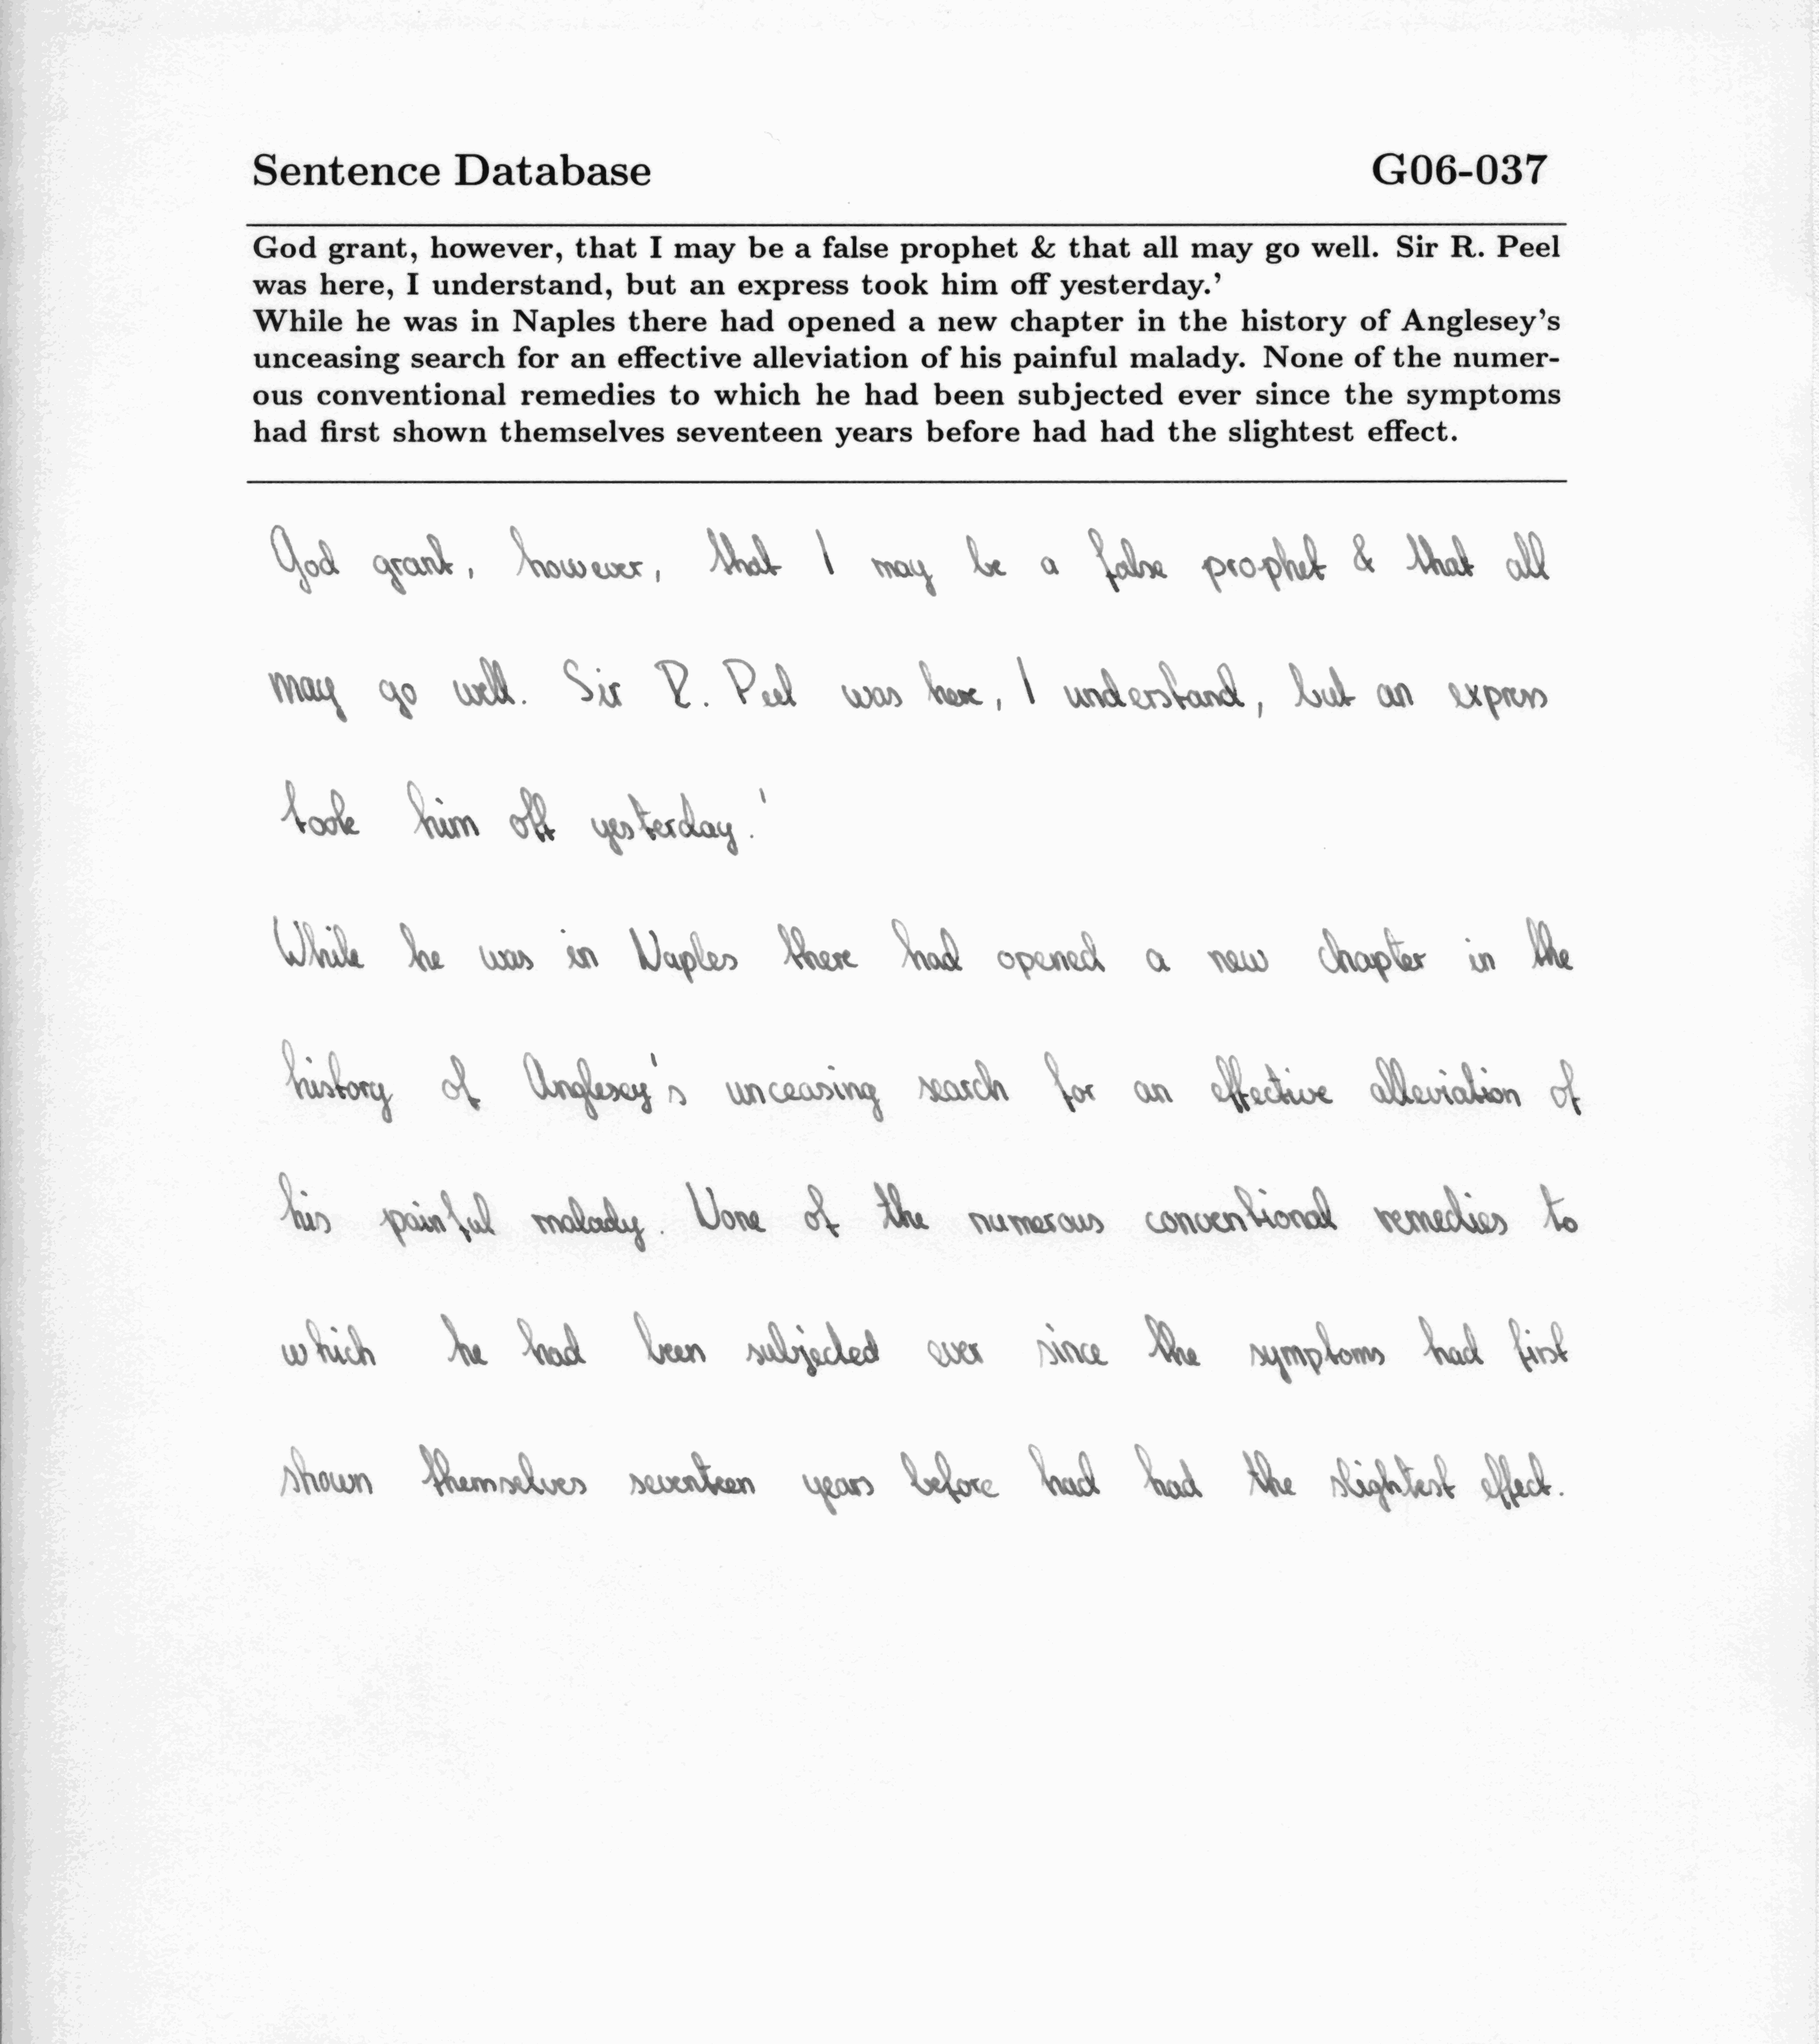 Sentence Database G06-037
God grant, however, that I may be a false prophet & that all may go well. Sir R. Peel
was here, I understand, but an express took him off yesterday.’
While he was in Naples there had opened a new chapter in the history of Anglesey’s
unceasing search for an effective alleviation of his painful malady. None of the numer-
ous conventional remedies to which he had been subjected ever since the symptoms
had first shown themselves seventeen years before had had the slightest effect.
God grant, however, that I may be a false prophet & that all
may go well. Sir R. Peel was here, I understand, but an express
took him off yesterday.'
While he was in Naples there had opened a new chapter in the
history of Anglesey's unceasing search for an effective alleviation of
his painful malady. None of the numerous conventional remedies to
which he had been subjected ever since the symptoms had first
shown themselves seventeen years before had had the slightest effect.